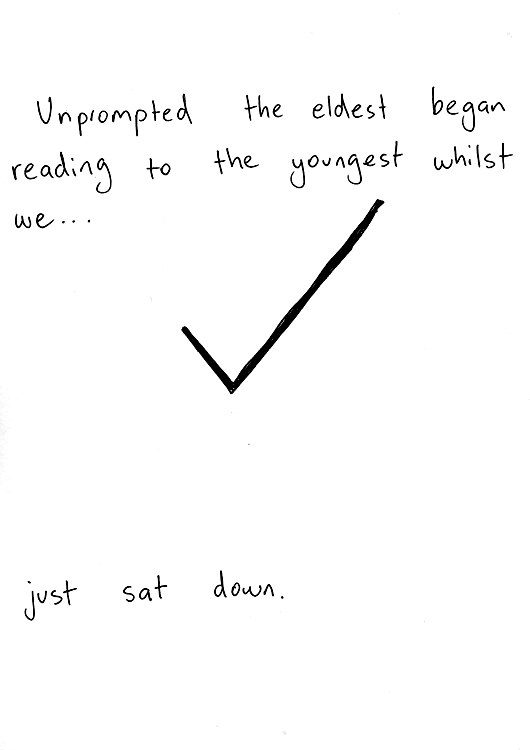 Unprompted the eldest began
reading to the youngest whilst
we...
just sat down.